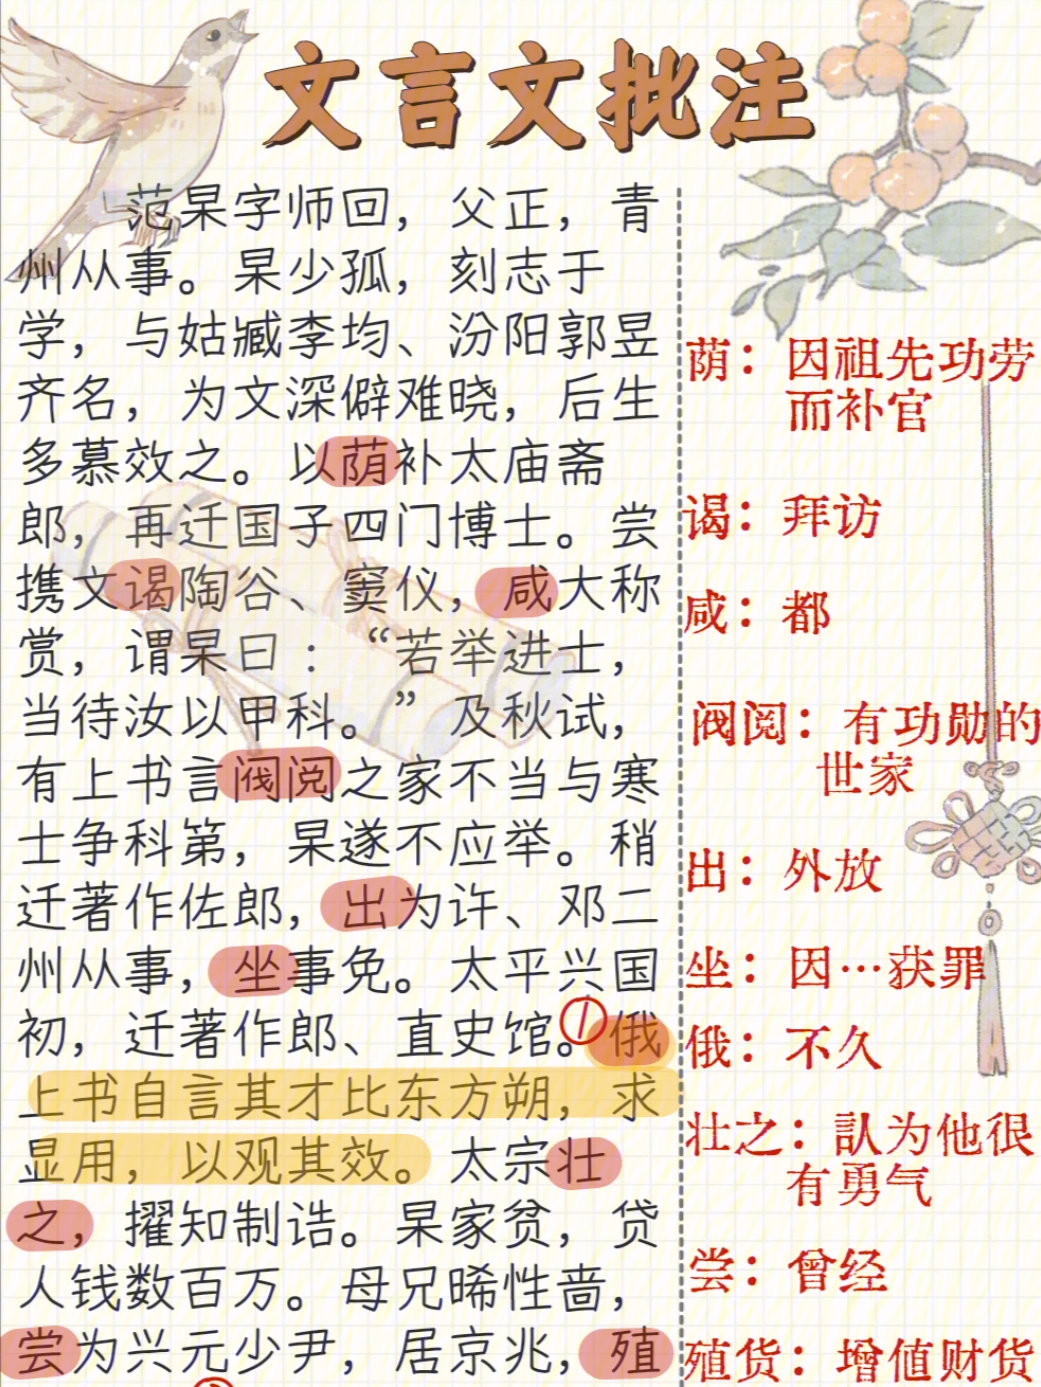 文言文批注
范杲字师回，父正，青
州从事。杲少孤，刻志于
学，与姑臧李均、汾阳郭昱
齐名，为文深僻难晓，后生
多慕效之。以荫补太庙斋
郎，再迁国子四门博士。尝
携文谒陶谷、窦仪，咸大称
赏，谓杲曰：“若举进士，
当待汝以甲科。”及秋试，
有上书言阀阅之家不当与寒
士争科第，杲遂不应举。稍
迁著作佐郎，出为许、邓二
州从事，坐事免。太平兴国
初，迁著作郎、直史馆。①俄
上书自言其才比东方朔，求
显用，以观其效。太宗壮
之，擢知制诰。杲家贫，贷
人钱数百万。母兄晞性啬，
尝为兴元少尹，居京兆，殖
荫：因祖先功劳
而补官
谒：拜访
咸：都
阀阅：有功勋的
世家
出：外放
坐：因…获罪
俄：不久
壮之：认为他很
有勇气
尝：曾经
殖货：增值财货